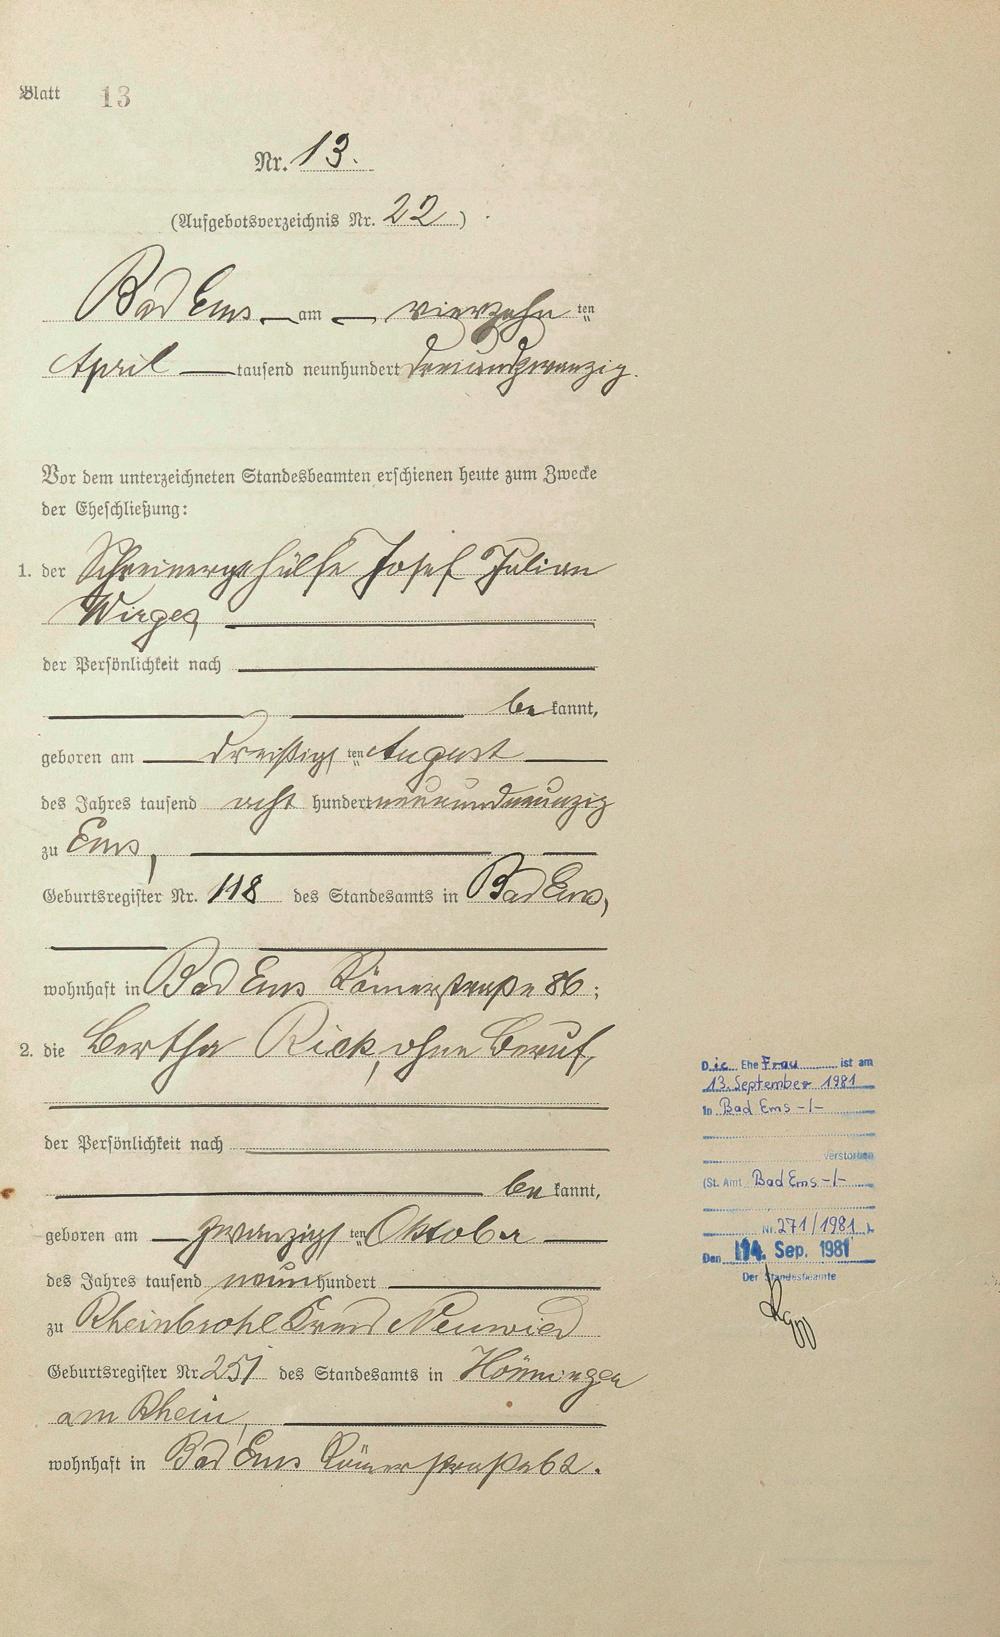 Blatt 13
Nr. 13.
(Aufgebotsverzeichnis Nr. 22)
Bad Ems am vierzehn ten
April tausend neunhundert dreiundzwanzig.
Vor dem unterzeichneten Standesbeamten erschienen heute zum Zwecke
der Eheschließung:
1. der Schreinergehülfe Josef Julian
Wirges,
der Persönlichkeit nach
be kannt,
geboren am dreißigs ten August
des Jahres tausend acht hundert neunundneunzig
zu Ems,
Geburtsregister Nr. 118 des Standesamts in Bad Ems,
wohnhaft in Bad Ems Römerstraße 86;
2. die Bertha Rick, ohne Beruf,
der Persönlichkeit nach
be kannt,
geboren am zwanzigs ten Oktober
des Jahres tausend neun hundert
zu Rheinbrohl Kreis Neuwied
Geburtsregister Nr. 251 des Standesamts in Hönningen
am Rhein,
wohnhaft in Bad Ems Römerstraße 62.
Die Ehe Frau ist am
13. September 1981
in Bad Ems -/-
verstorben
(St. Amt Bad Ems -/-
Nr. 271/1981 ).
Den 14. Sep. 1981
Der Standesbeamte